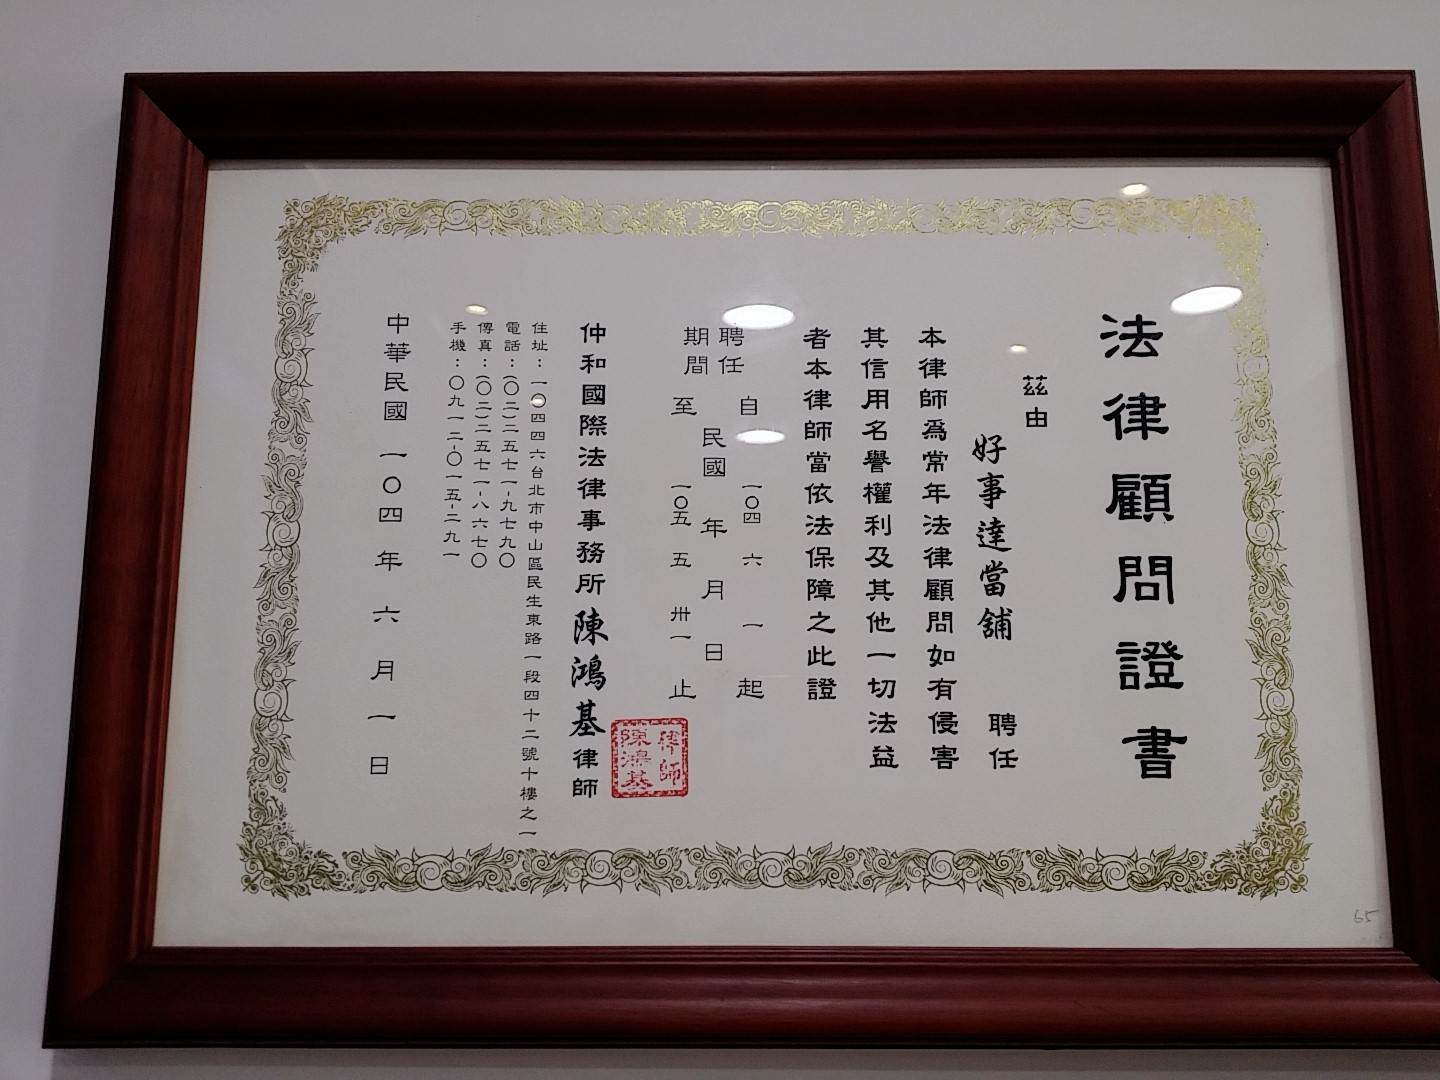 法律顧問證書
茲由
好事達當舖 聘任
本律師為常年法律顧問如有侵害
其信用名譽權利及其他一切法益
者本律師當依法保障之此證
聘任期間
自民國一〇四年六月一日起
至民國一〇五年五月卅一日止
仲和國際法律事務所陳鴻基律師
律師陳鴻基
住址：一〇四四六台北市中山區民生東路一段四十二號十樓之一
電話：(〇二)二五七一-九七九〇
傳真：(〇二)二五七一-八六七〇
手機：〇九一二-〇一五-二九一
中華民國一〇四年六月一日
65